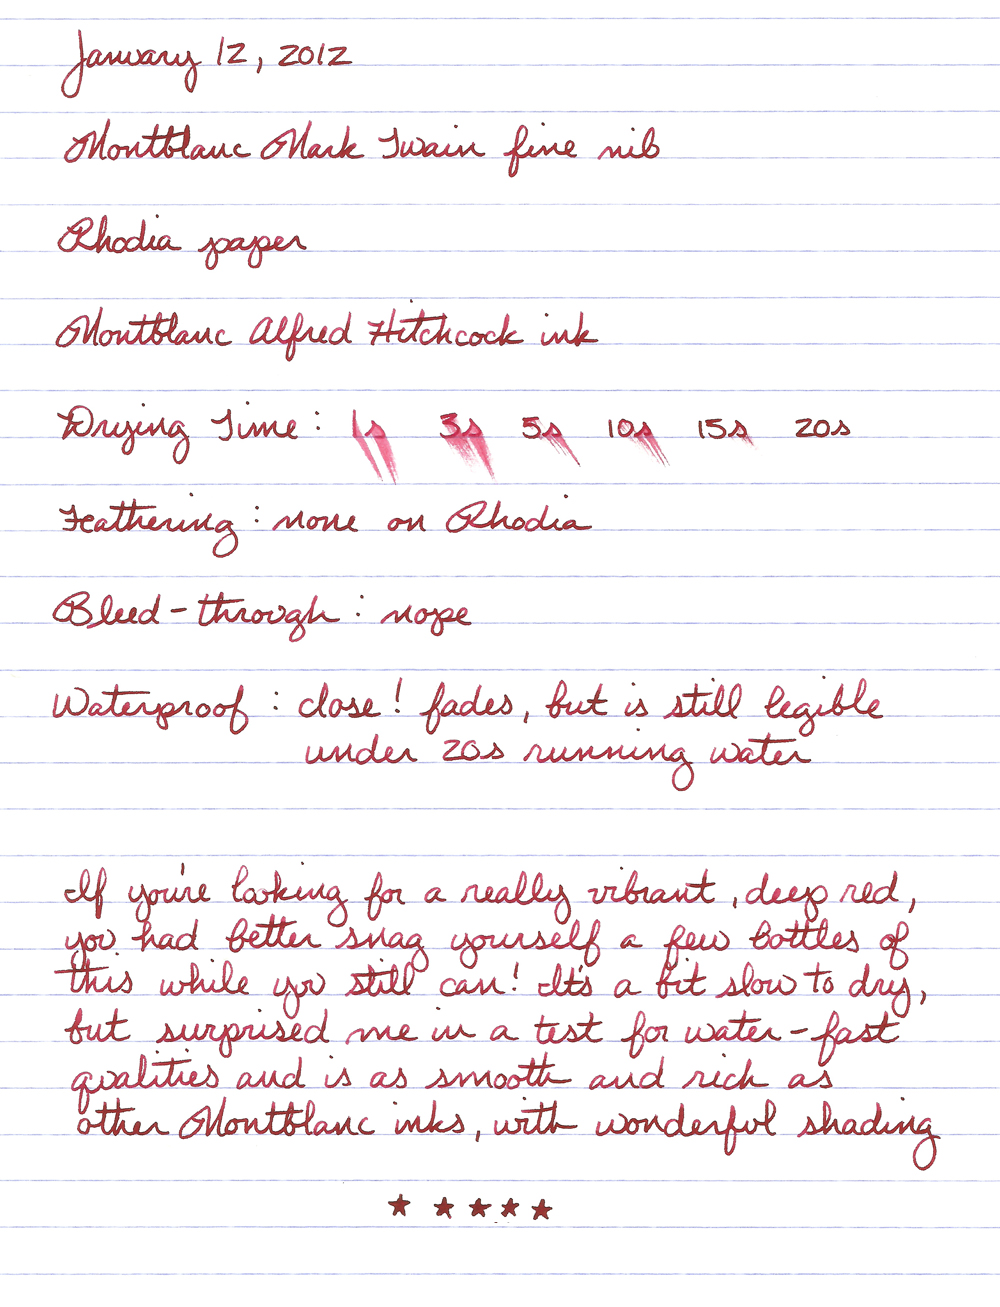 January 12, 2012
Montblanc Mark Twain fine nib
Rhodia paper
Montblanc Alfred Hitchcock ink
Drying Time: 1s 3s 5s 10s 15s 20s
Feathering: none on Rhodia
Bleed-through: nope
Waterproof: close! fades, but is still legible
under 20s running water
If you're looking for a really vibrant, deep red,
you had better snag yourself a few bottles of
this while you still can! It's a bit slow to dry,
but surprised me in a test for water-fast
qualities and is as smooth and rich as
other Montblanc inks, with wonderful shading
★ ★ ★ ★ ★